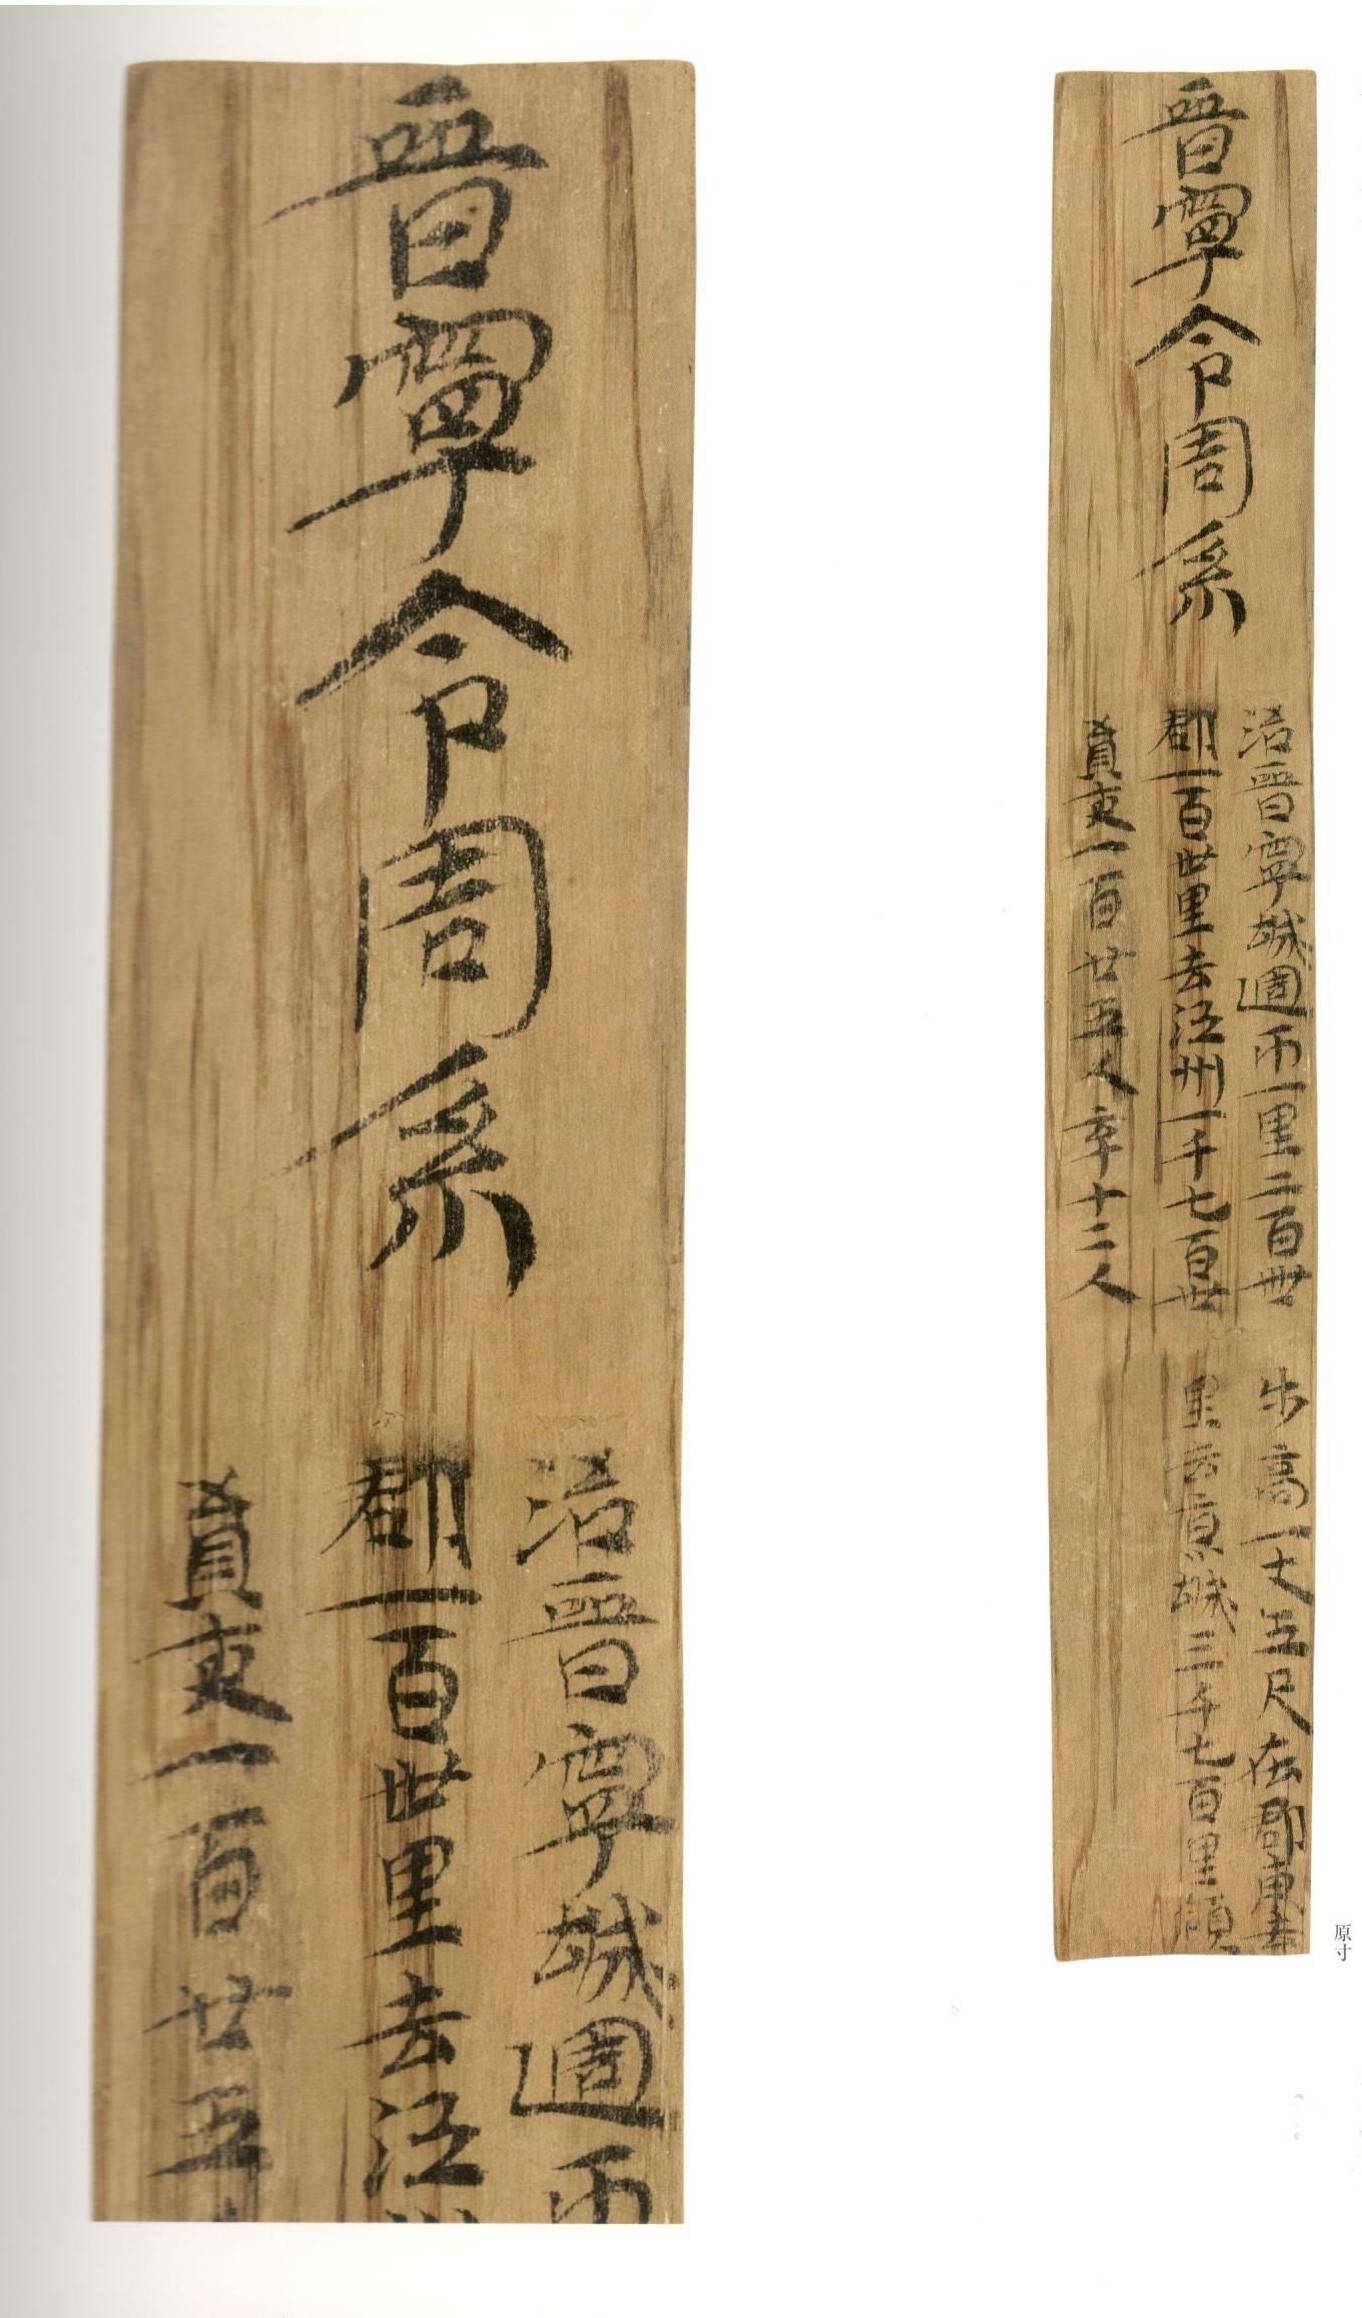 晉寧令周系
治晉寧城週帀一里二百卌步高一丈五尺在郡東去
郡一百卅里去江州一千七百卅里去京城三千七百里領
員吏一百廿五人卒十二人
原寸
晉寧令周系
治晉寧城週帀
郡一百卅里去江
員吏一百廿五